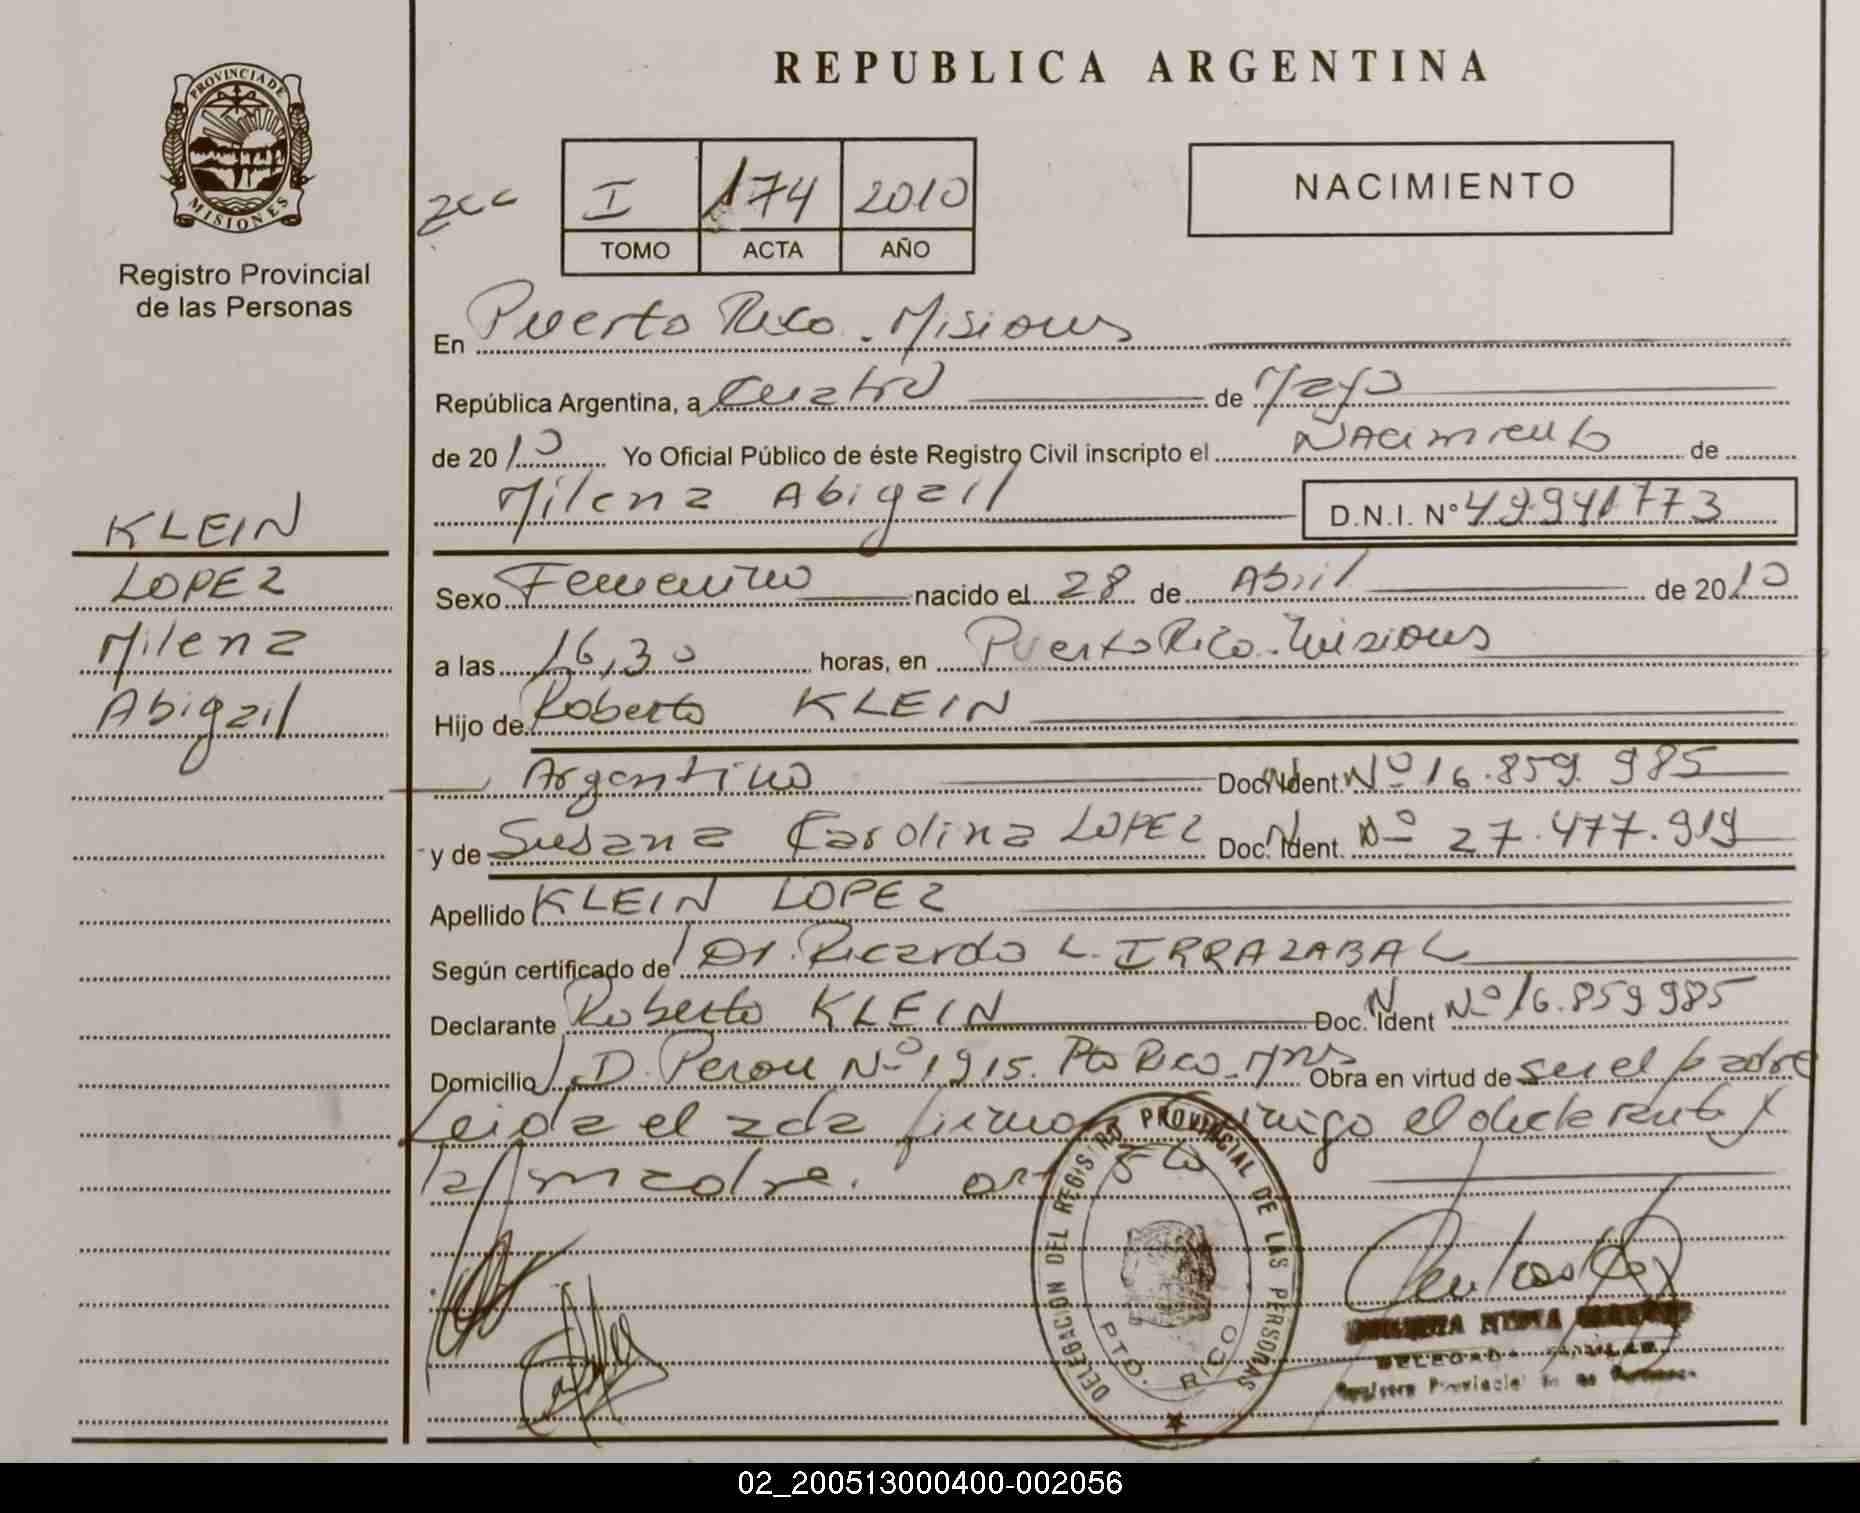 REPUBLICA ARGENTINA
PROVINCIA DE MISIONES
Registro Provincial
de las Personas
I 174 2010
TOMO ACTA AÑO
NACIMIENTO
En Puerto Rico - Misiones
República Argentina, a Cuatro de Mayo
de 2010 Yo Oficial Público de éste Registro Civil inscripto el Nacimiento de
Milena Abigail D.N.I. N° 49941773
KLEIN
LOPEZ
Milena
Abigail
Sexo Femenino nacido el 28 de Abril de 2010
a las 16,30 horas, en Puerto Rico - Misiones
Hijo de Roberto KLEIN
Argentino Doc. Ident. Nº 16.859.985
y de Susana Carolina LOPEZ Doc. Ident. Nº 27.477.919
Apellido KLEIN LOPEZ
Según certificado de Dr. Ricardo L. IRRAZABAL
Declarante Roberto KLEIN Doc. Ident Nº 16.859.985
Domicilio J.D. Peron Nº 1915. Pto Rico - Mnes Obra en virtud de ser el padre
Leida el acta firman conmigo el declarante y
la madre.
DELEGACION DEL REGISTRO PROVINCIAL DE LAS PERSONAS
PTO. RICO
DELEGADA
Registro Provincial de las Personas
02_200513000400-002056